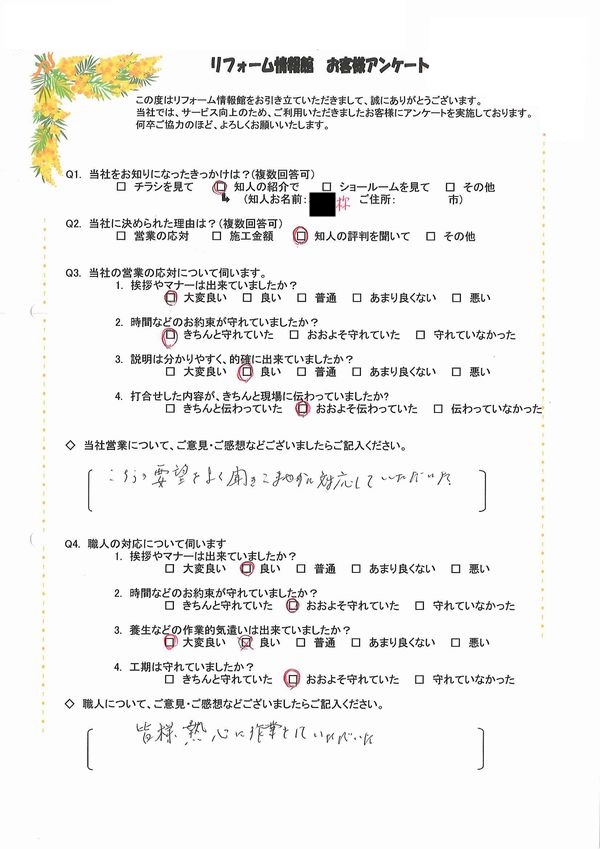 リフォーム情報館 お客様アンケート
この度はリフォーム情報館をお引き立ていただきまして、誠にありがとうございます。
当社では、サービス向上のため、ご利用いただきましたお客様にアンケートを実施しております。
何卒ご協力のほど、よろしくお願いいたします。
Q1. 当社をお知りになったきっかけは？(複数回答可)
□ チラシを見て □ 知人の紹介で □ ショールームを見て □ その他
(知人お名前: 様 ご住所: 市)
Q2. 当社に決められた理由は？(複数回答可)
□ 営業の応対 □ 施工金額 □ 知人の評判を聞いて □ その他
Q3. 当社の営業の応対について伺います。
1. 挨拶やマナーは出来ていましたか？
□ 大変良い □ 良い □ 普通 □ あまり良くない □ 悪い
2. 時間などのお約束が守れていましたか？
□ きちんと守れていた □ おおよそ守れていた □ 守れていなかった
3. 説明は分かりやすく、的確に出来ていましたか？
□ 大変良い □ 良い □ 普通 □ あまり良くない □ 悪い
4. 打合せした内容が、きちんと現場に伝わっていましたか?
□ きちんと伝わっていた □ おおよそ伝わっていた □ 伝わっていなかった
◇ 当社営業について、ご意見・ご感想などございましたらご記入ください。
要望をよく聞き 対応していただいた
Q4. 職人の対応について伺います
1. 挨拶やマナーは出来ていましたか？
□ 大変良い □ 良い □ 普通 □ あまり良くない □ 悪い
2. 時間などのお約束が守れていましたか？
□ きちんと守れていた □ おおよそ守れていた □ 守れていなかった
3. 養生などの作業的気遣いは出来ていましたか？
□ 大変良い ☑ 良い □ 普通 □ あまり良くない □ 悪い
4. 工期は守れていましたか？
□ きちんと守れていた □ おおよそ守れていた □ 守れていなかった
◇ 職人について、ご意見・ご感想などございましたらご記入ください。
皆様、熱心に作業をしていただいた